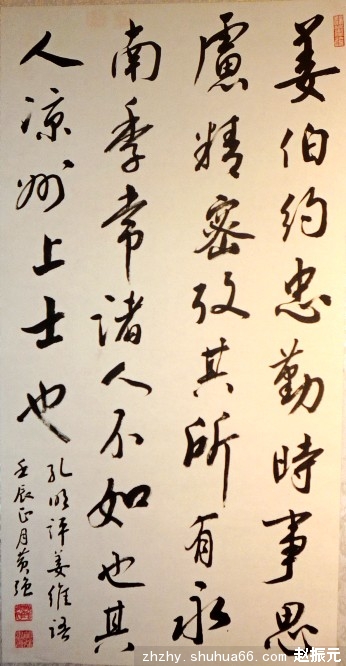 姜伯约忠勤時事思
慮精密攷其所有永
南季常諸人不如也其
人凉州上士也
孔明評姜維語
壬辰正月黄強
zhzhy.shuhua66.com 赵振元